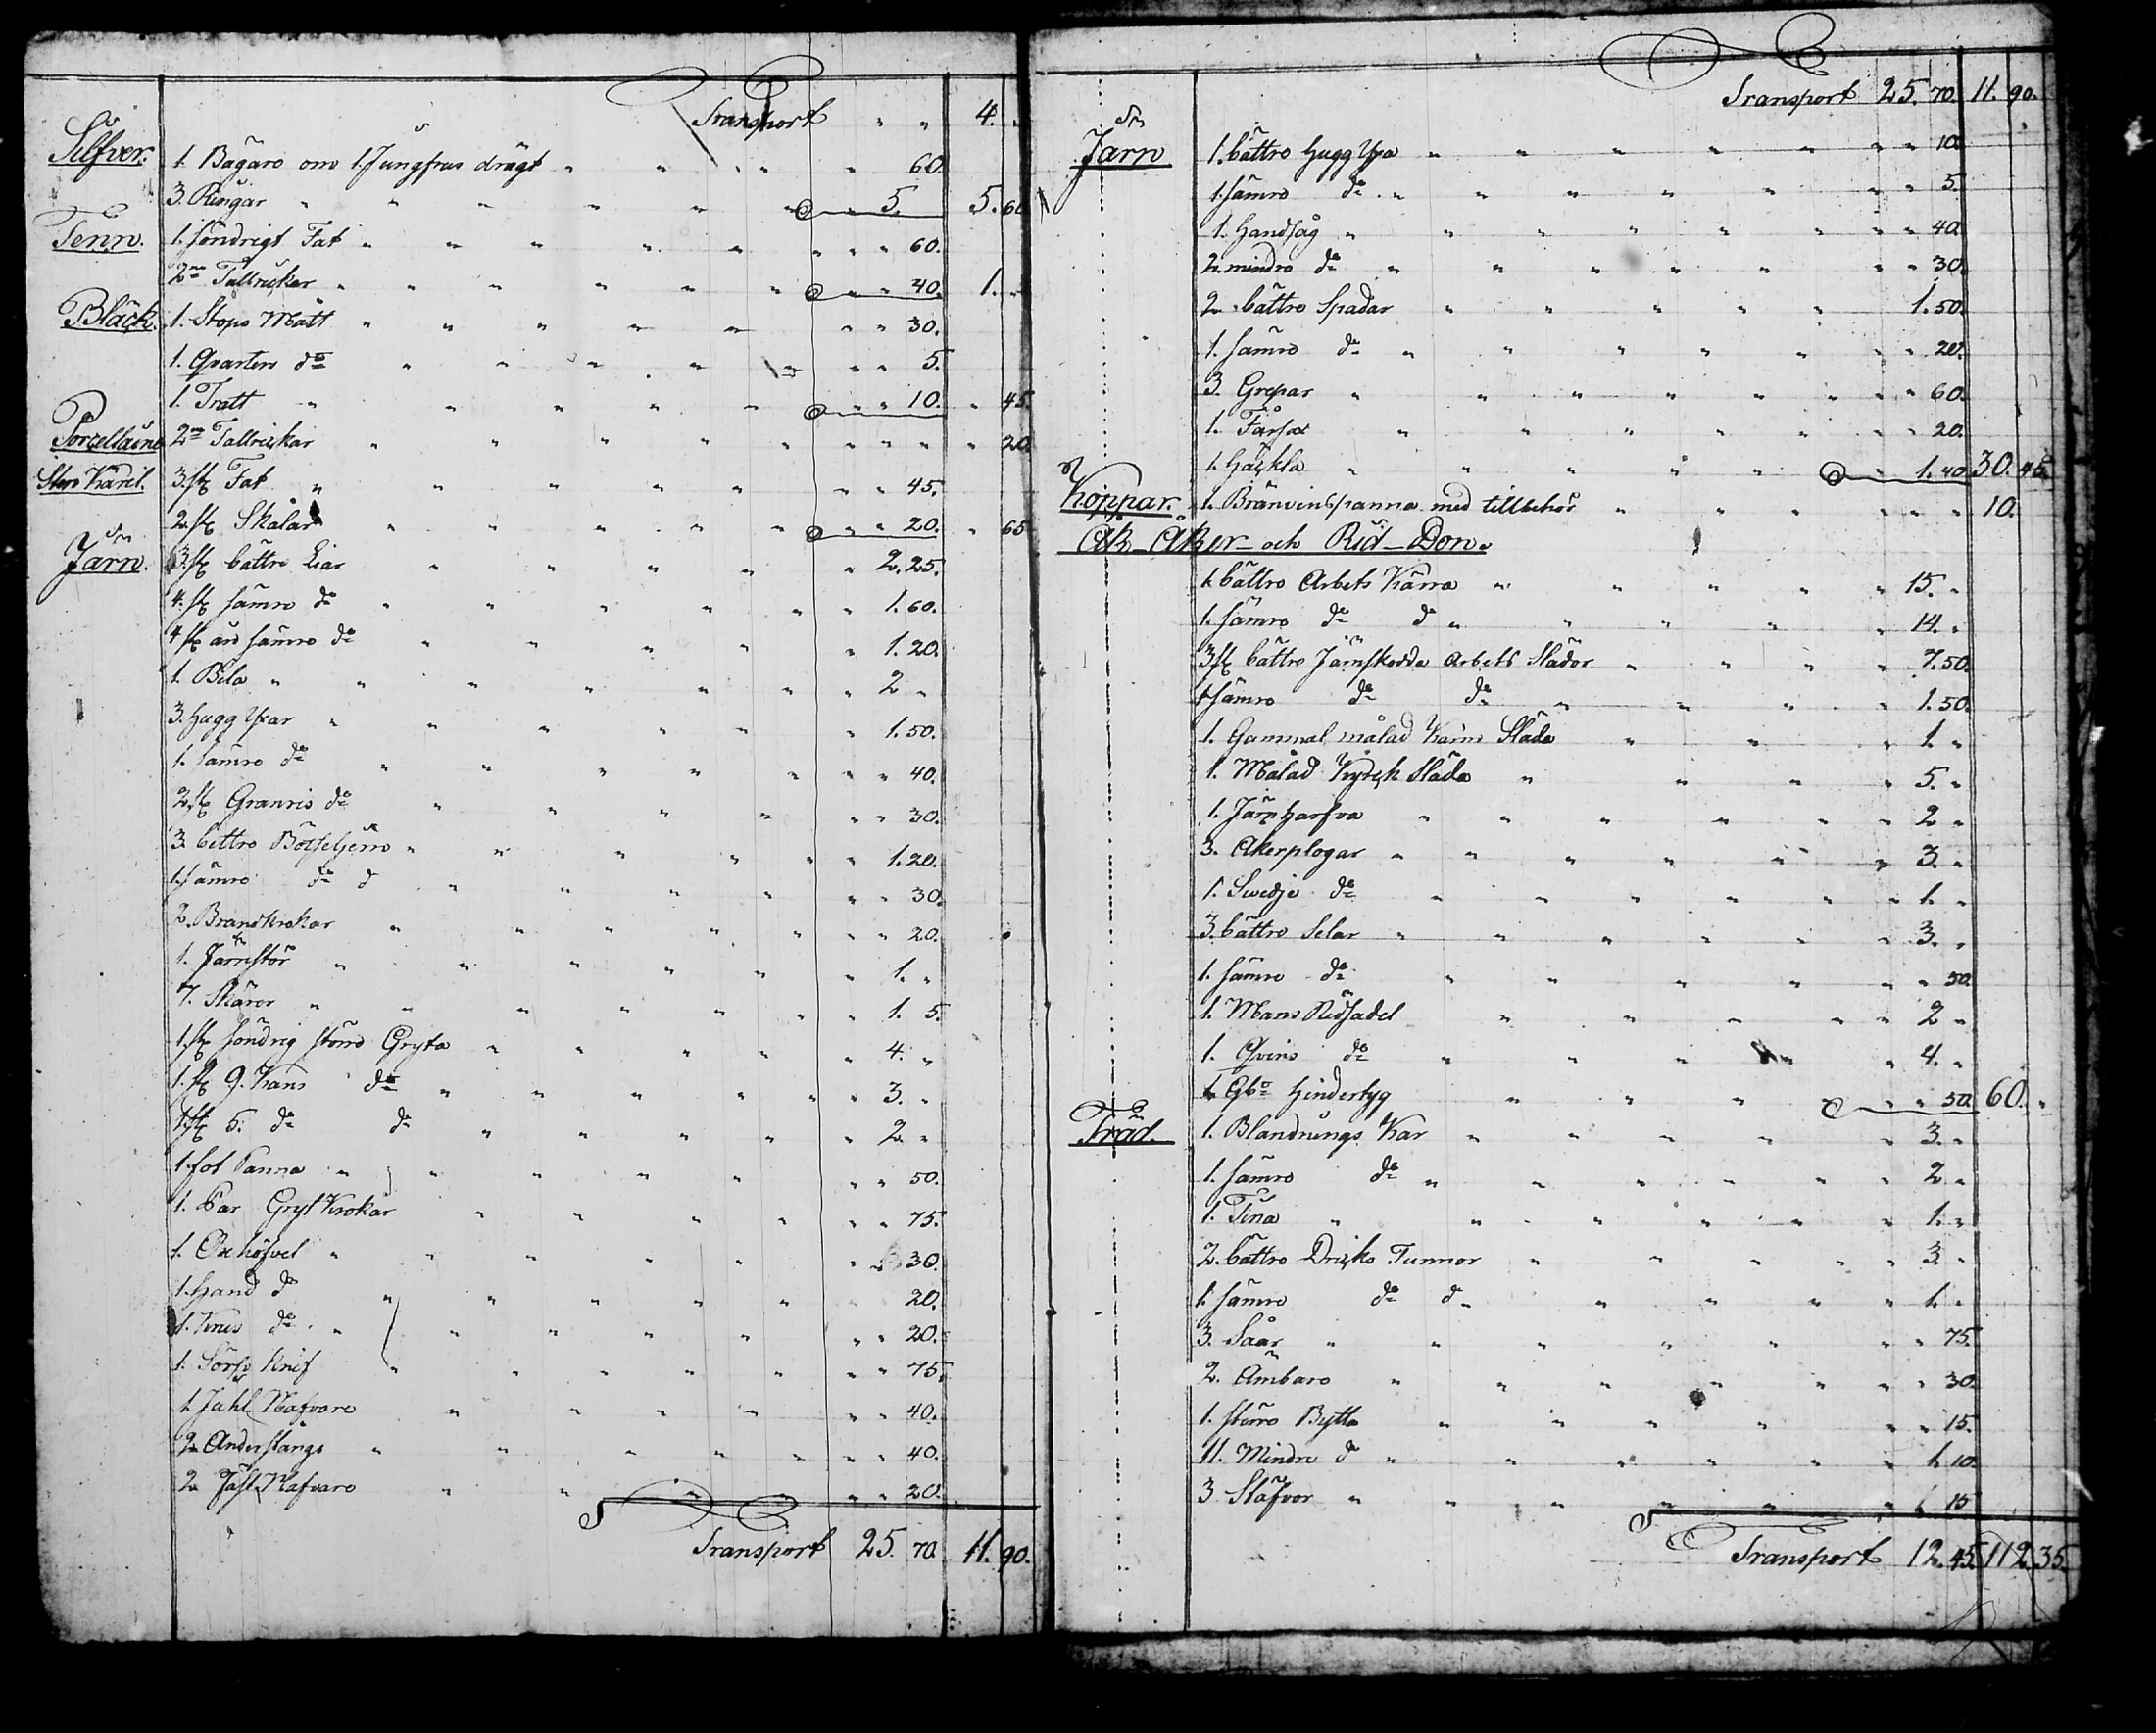 Transport " " 4. "
Silfver. 1. Bägare om 1. Jungfrus drägt " 60.
3. Ringar " 5. " 5. 60
Tenn. 1. söndrigt Fat " " 60.
2ne Tallrickar " " 40. 1. "
Bläck. 1. Stops Mått " " 30.
1. Qvarters do " " 5.
1. Tratt " " 10. " 45.
Porcellaine 2ne Tallrickar " " " " 20
Sten Käril. 3. st. Fat " " 45.
2. st. Skålar " " 20. " 65
Järn. 3. st. bättre Liar " 2. 25.
4. st. sämre do " 1. 60.
4 st. än sämre do " 1. 20.
1. Bila " 2 "
3. Hugg Yxar " 1. 50.
1. sämre do " " 40.
2. st. Granris do " " 30.
3. bettre " 1. 20.
1. sämre do d " " 30.
2. Brandkrokar " " 20.
1. Järnstör " 1. "
7. Skäror " 1. 5.
1. st. söndrig större Gryta " 4. "
1. st. 9. Kans do " 3. "
1. st. 5. do do " 2. "
1. fot Panna " " 50.
1. Par Gryt Krokar " " 75.
1. Oxhöfvel " " 30.
1. Hand do " 20.
1. do " " 20.
1. Knif " " 75.
1. Nafvare " " 40.
2 " " 40.
2 Nafvare " " 20.
Transport 25. 70. 11. 90.
Transport 25. 70. 11. 90.
Järn 1. bättre Hugg Yxa " " 10.
1. sämre do " " 5.
1. Handsåg " " 40.
2. mindre do " " 30.
2 bättre Spadar " 1. 50.
1. sämre do " " 20.
3. Grepar " " 60.
1. Fårsax " " 20.
1. Häckla " 1. 40. 30. 45.
Koppar. 1. Bränvinspanna med tillbehör " " 10.
Åk- Åker- och Rid-Don.
1. bättre Arbets Kärra 15. "
1. sämre do d " 14. "
3 st. bättre Järnskodda Arbets Slädor " 7. 50.
1 sämre do do " 1. 50.
1. Gammal målad Karm Släda " 1. "
1. Målad Kyrck Släda " 5. "
1. Järn Harfva " 2 "
3. Åkerplogar " 3. "
1. Svedje do " 1. "
3. bättre Selar " 3. "
1. sämre do " " 50.
1. Mans Ridsadel " 2 "
1. Qvins do " 4. "
1. Hindertyg " " 50. 60. "
Träd. 1. Blandnings Kar " 3. "
1. sämre do " 2. "
1. Tina " 1. "
2. bättre Dricks Tunnor " 3. "
1. sämre do d " 1. "
3. Såar " " 75.
2. Ämbare " " 30.
1. större Bytta " " 15.
11. Mindre do " 1. 10.
3 Stäfvor " " 15
Transport 12. 45. 112. 35.